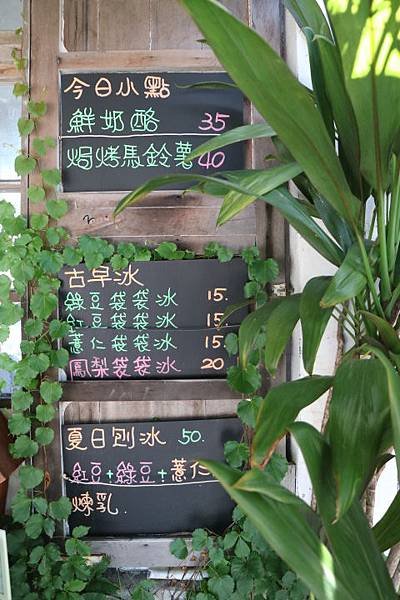 今日小點
鮮奶酪 35
焗烤馬鈴薯 40
古早冰
綠豆袋袋冰 15.
紅豆袋袋冰 15
薏仁袋袋冰 15
鳳梨袋袋冰 20
夏日刨冰 50.
紅豆+綠豆+薏仁
煉乳.